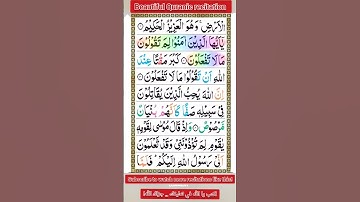 Beautiful Quranic recitation
الْاَرْضِ وَهُوَ الْعَزِيْزُ الْحَكِيْمُ
يٰۤاَيُّهَا الَّذِيْنَ اٰمَنُوْا لِمَ تَقُوْلُوْنَ
مَا لَا تَفْعَلُوْنَ كَبُرَ مَقْتًا عِنْدَ
اللّٰهِ اَنْ تَقُوْلُوْا مَا لَا تَفْعَلُوْنَ
اِنَّ اللّٰهَ يُحِبُّ الَّذِيْنَ يُقَاتِلُوْنَ
فِيْ سَبِيْلِهٖ صَفًّا كَاَنَّهُمْ بُنْيَانٌ
مَّرْصُوْصٌ وَاِذْ قَالَ مُوْسٰى لِقَوْمِهٖ
يٰقَوْمِ لِمَ تُؤْذُوْنَنِيْ وَقَدْ تَّعْلَمُوْنَ
اَنِّيْ رَسُوْلُ اللّٰهِ اِلَيْكُمْ فَلَمَّا
Subscribe to watch more recitations like this!